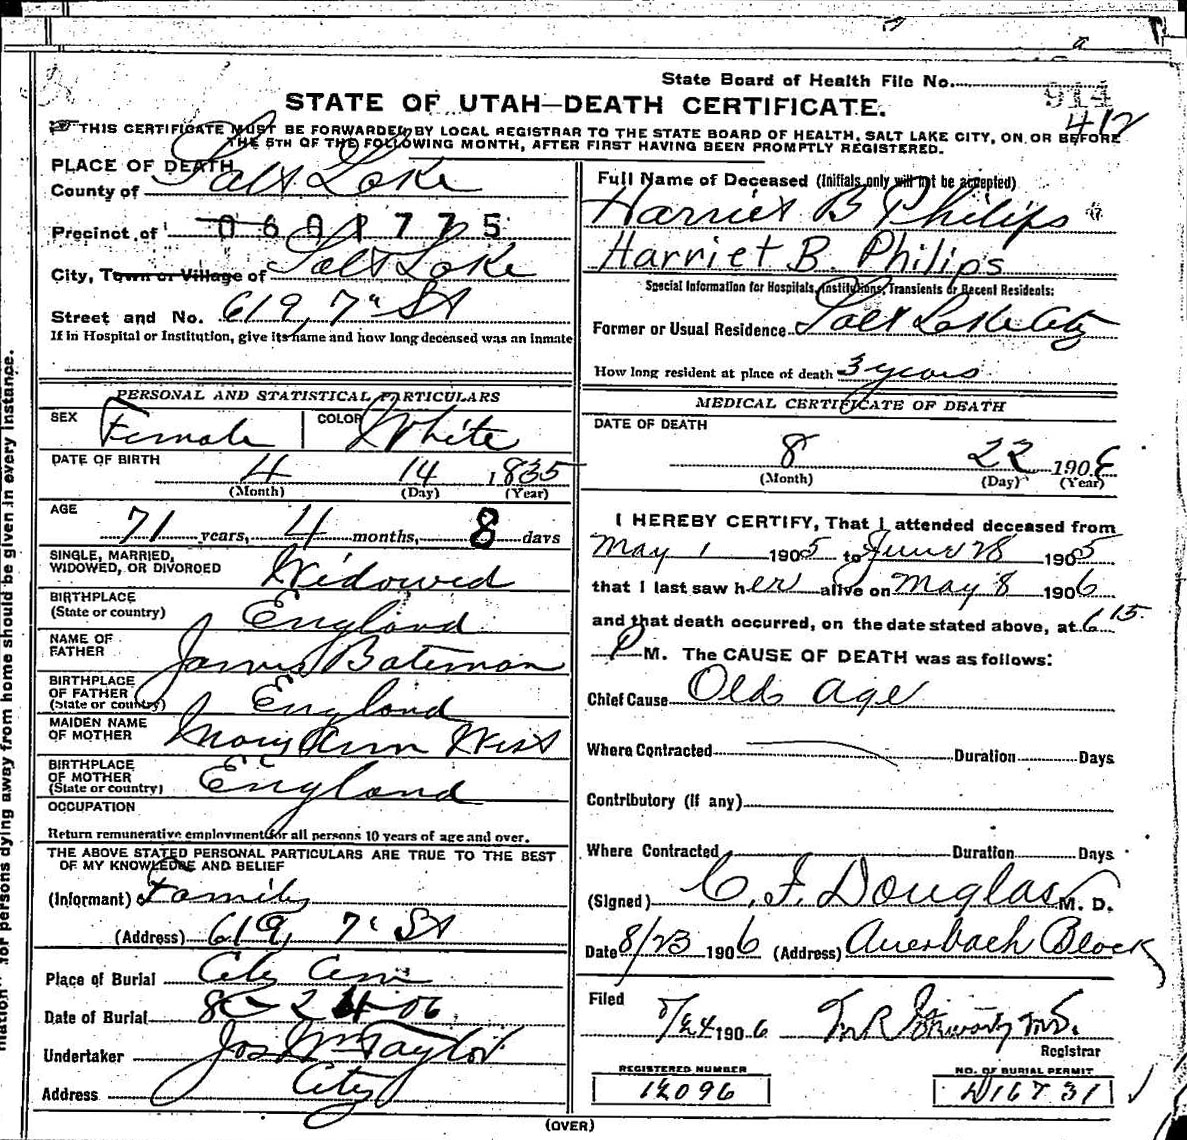 State Board of Health File No. 914
417
STATE OF UTAH—DEATH CERTIFICATE.
THIS CERTIFICATE MUST BE FORWARDED BY LOCAL REGISTRAR TO THE STATE BOARD OF HEALTH, SALT LAKE CITY, ON OR BEFORE
THE 5TH OF THE FOLLOWING MONTH, AFTER FIRST HAVING BEEN PROMPTLY REGISTERED.
PLACE OF DEATH
County of Salt Lake
Precinct of 0601775
City, Town or Village of Salt Lake
Street and No. 619, 7" St
If in Hospital or Institution, give its name and how long deceased was an inmate
PERSONAL AND STATISTICAL PARTICULARS
SEX Female COLOR White
DATE OF BIRTH 4 14 1835
(Month) (Day) (Year)
AGE 71 years, 4 months, 8 days
SINGLE, MARRIED,
WIDOWED, OR DIVORCED Widowed
BIRTHPLACE
(State or country) England
NAME OF
FATHER James Bateman
BIRTHPLACE
OF FATHER
(State or country) England
MAIDEN NAME
OF MOTHER Mary Ann West
BIRTHPLACE
OF MOTHER
(State or country) England
OCCUPATION
Return remunerative employment for all persons 10 years of age and over.
THE ABOVE STATED PERSONAL PARTICULARS ARE TRUE TO THE BEST
OF MY KNOWLEDGE AND BELIEF
(Informant) Family
(Address) 619, 7" St
Place of Burial City Cem
Date of Burial 8-24-06
Undertaker Jos Wm Taylor
Address City
Full Name of Deceased (Initials only will not be accepted)
Harriet B Philips
Harriet B. Philips
Special Information for Hospitals, Institutions, Transients or Recent Residents:
Former or Usual Residence Salt Lake City
How long resident at place of death 3 years
MEDICAL CERTIFICATE OF DEATH
DATE OF DEATH
8 22 1906
(Month) (Day) (Year)
I HEREBY CERTIFY, That I attended deceased from
May 1 1905 to June 28 1905
that I last saw her alive on May 8 1906
and that death occurred, on the date stated above, at 6 15
P M. The CAUSE OF DEATH was as follows:
Chief Cause Old age
Where Contracted Duration Days
Contributory (if any)
Where Contracted Duration Days
(Signed) C. F. Douglas M. D.
Date 8/23 1906 (Address) Auerbach Block
Filed 8/24 1906
Registrar
REGISTERED NUMBER
12096
NO. OF BURIAL PERMIT
D16731
(OVER)
for persons dying away from home should be given in every instance.